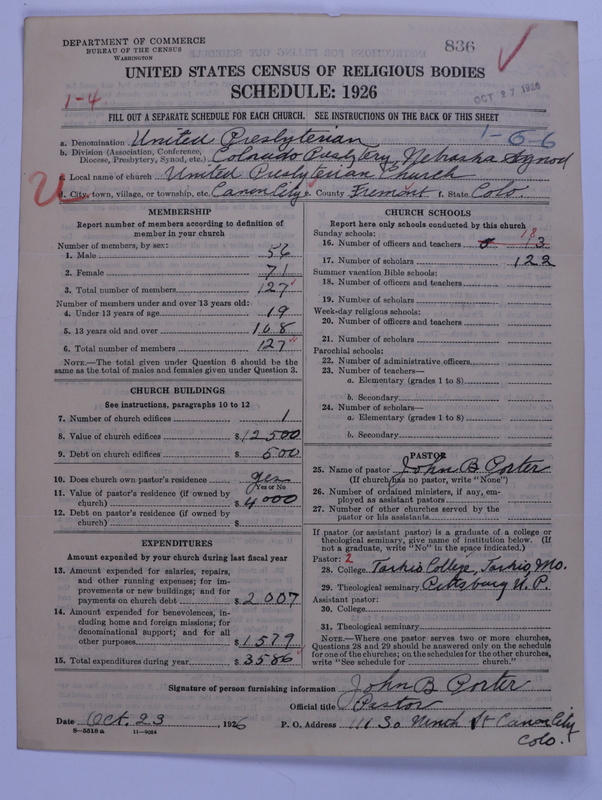 DEPARTMENT OF COMMERCE
BUREAU OF THE CENSUS
WASHINGTON
836
UNITED STATES CENSUS OF RELIGIOUS BODIES
SCHEDULE: 1926
1-4
OCT 27 1926
FILL OUT A SEPARATE SCHEDULE FOR EACH CHURCH. SEE INSTRUCTIONS ON THE BACK OF THIS SHEET
1-6-6
a. Denomination United Presbyterian
b. Division (Association, Conference, Diocese, Presbytery, Synod, etc.) Colorado Presbytery, Nebraska Synod
c. Local name of church United Presbyterian Church
d. City, town, village, or township, etc. Canon City e. County Fremont f. State Colo.
MEMBERSHIP
Report number of members according to definition of
member in your church
Number of members, by sex:
1. Male 56
2. Female 71
3. Total number of members 127
Number of members under and over 13 years old:
4. Under 13 years of age 19
5. 13 years old and over 108
6. Total number of members 127
NOTE.—The total given under Question 6 should be
same as the total of males and females given under Question 3.
CHURCH BUILDINGS
See instructions, paragraphs 10 to 12
7. Number of church edifices 1
8. Value of church edifices $12500
9. Debt on church edifices $ 500
10. Does church own pastor's residence yes
Yes or No
11. Value of pastor's residence (if owned by
church) $4000
12. Debt on pastor's residence (if owned by
church) $
EXPENDITURES
Amount expended by your church during last fiscal year
13. Amount expended for salaries, repairs,
and other running expenses; for im-
provements or new buildings; and for
payments on church debt $2007
14. Amount expended for benevolences, in-
cluding home and foreign missions; for
denominational support; and for all
other purposes $1579
15. Total expenditures during year $3586
CHURCH SCHOOLS
Report here only schools conducted by this church
Sunday schools:
16. Number of officers and teachers 18 3
17. Number of scholars 122
Summer vacation Bible schools:
18. Number of officers and teachers
19. Number of scholars
Week-day religious schools:
20. Number of officers and teachers
21. Number of scholars
Parochial schools:
22. Number of administrative officers
23. Number of teachers—
a. Elementary (grades 1 to 8)
b. Secondary
24. Number of scholars—
a. Elementary (grades 1 to 8)
b. Secondary
PASTOR
25. Name of pastor John B Porter
(If church has no pastor, write "None")
26. Number of ordained ministers, if any, em-
ployed as assistant pastors
27. Number of other churches served by the
pastor or his assistants
If pastor (or assistant pastor) is a graduate of a college or
theological seminary, give name of institution below. (If
not a graduate, write "No" in the space indicated.)
Pastor: 2
28. College Tarkio College, Tarkio, Mo.
29. Theological seminary Pittsburg U. P.
Assistant pastor:
30. College
31. Theological seminary
NOTE.—Where one pastor serves two or more churches,
Questions 28 and 29 should be answered only on the schedule
for one of the churches; on the schedules for the other churches,
write "See schedule for church."
Signature of person furnishing information John B Porter
Official title Pastor
Date Oct. 23, 1926 P. O. Address 111 So Ninth St Canon City
Colo.
8—5518 a 11—9024